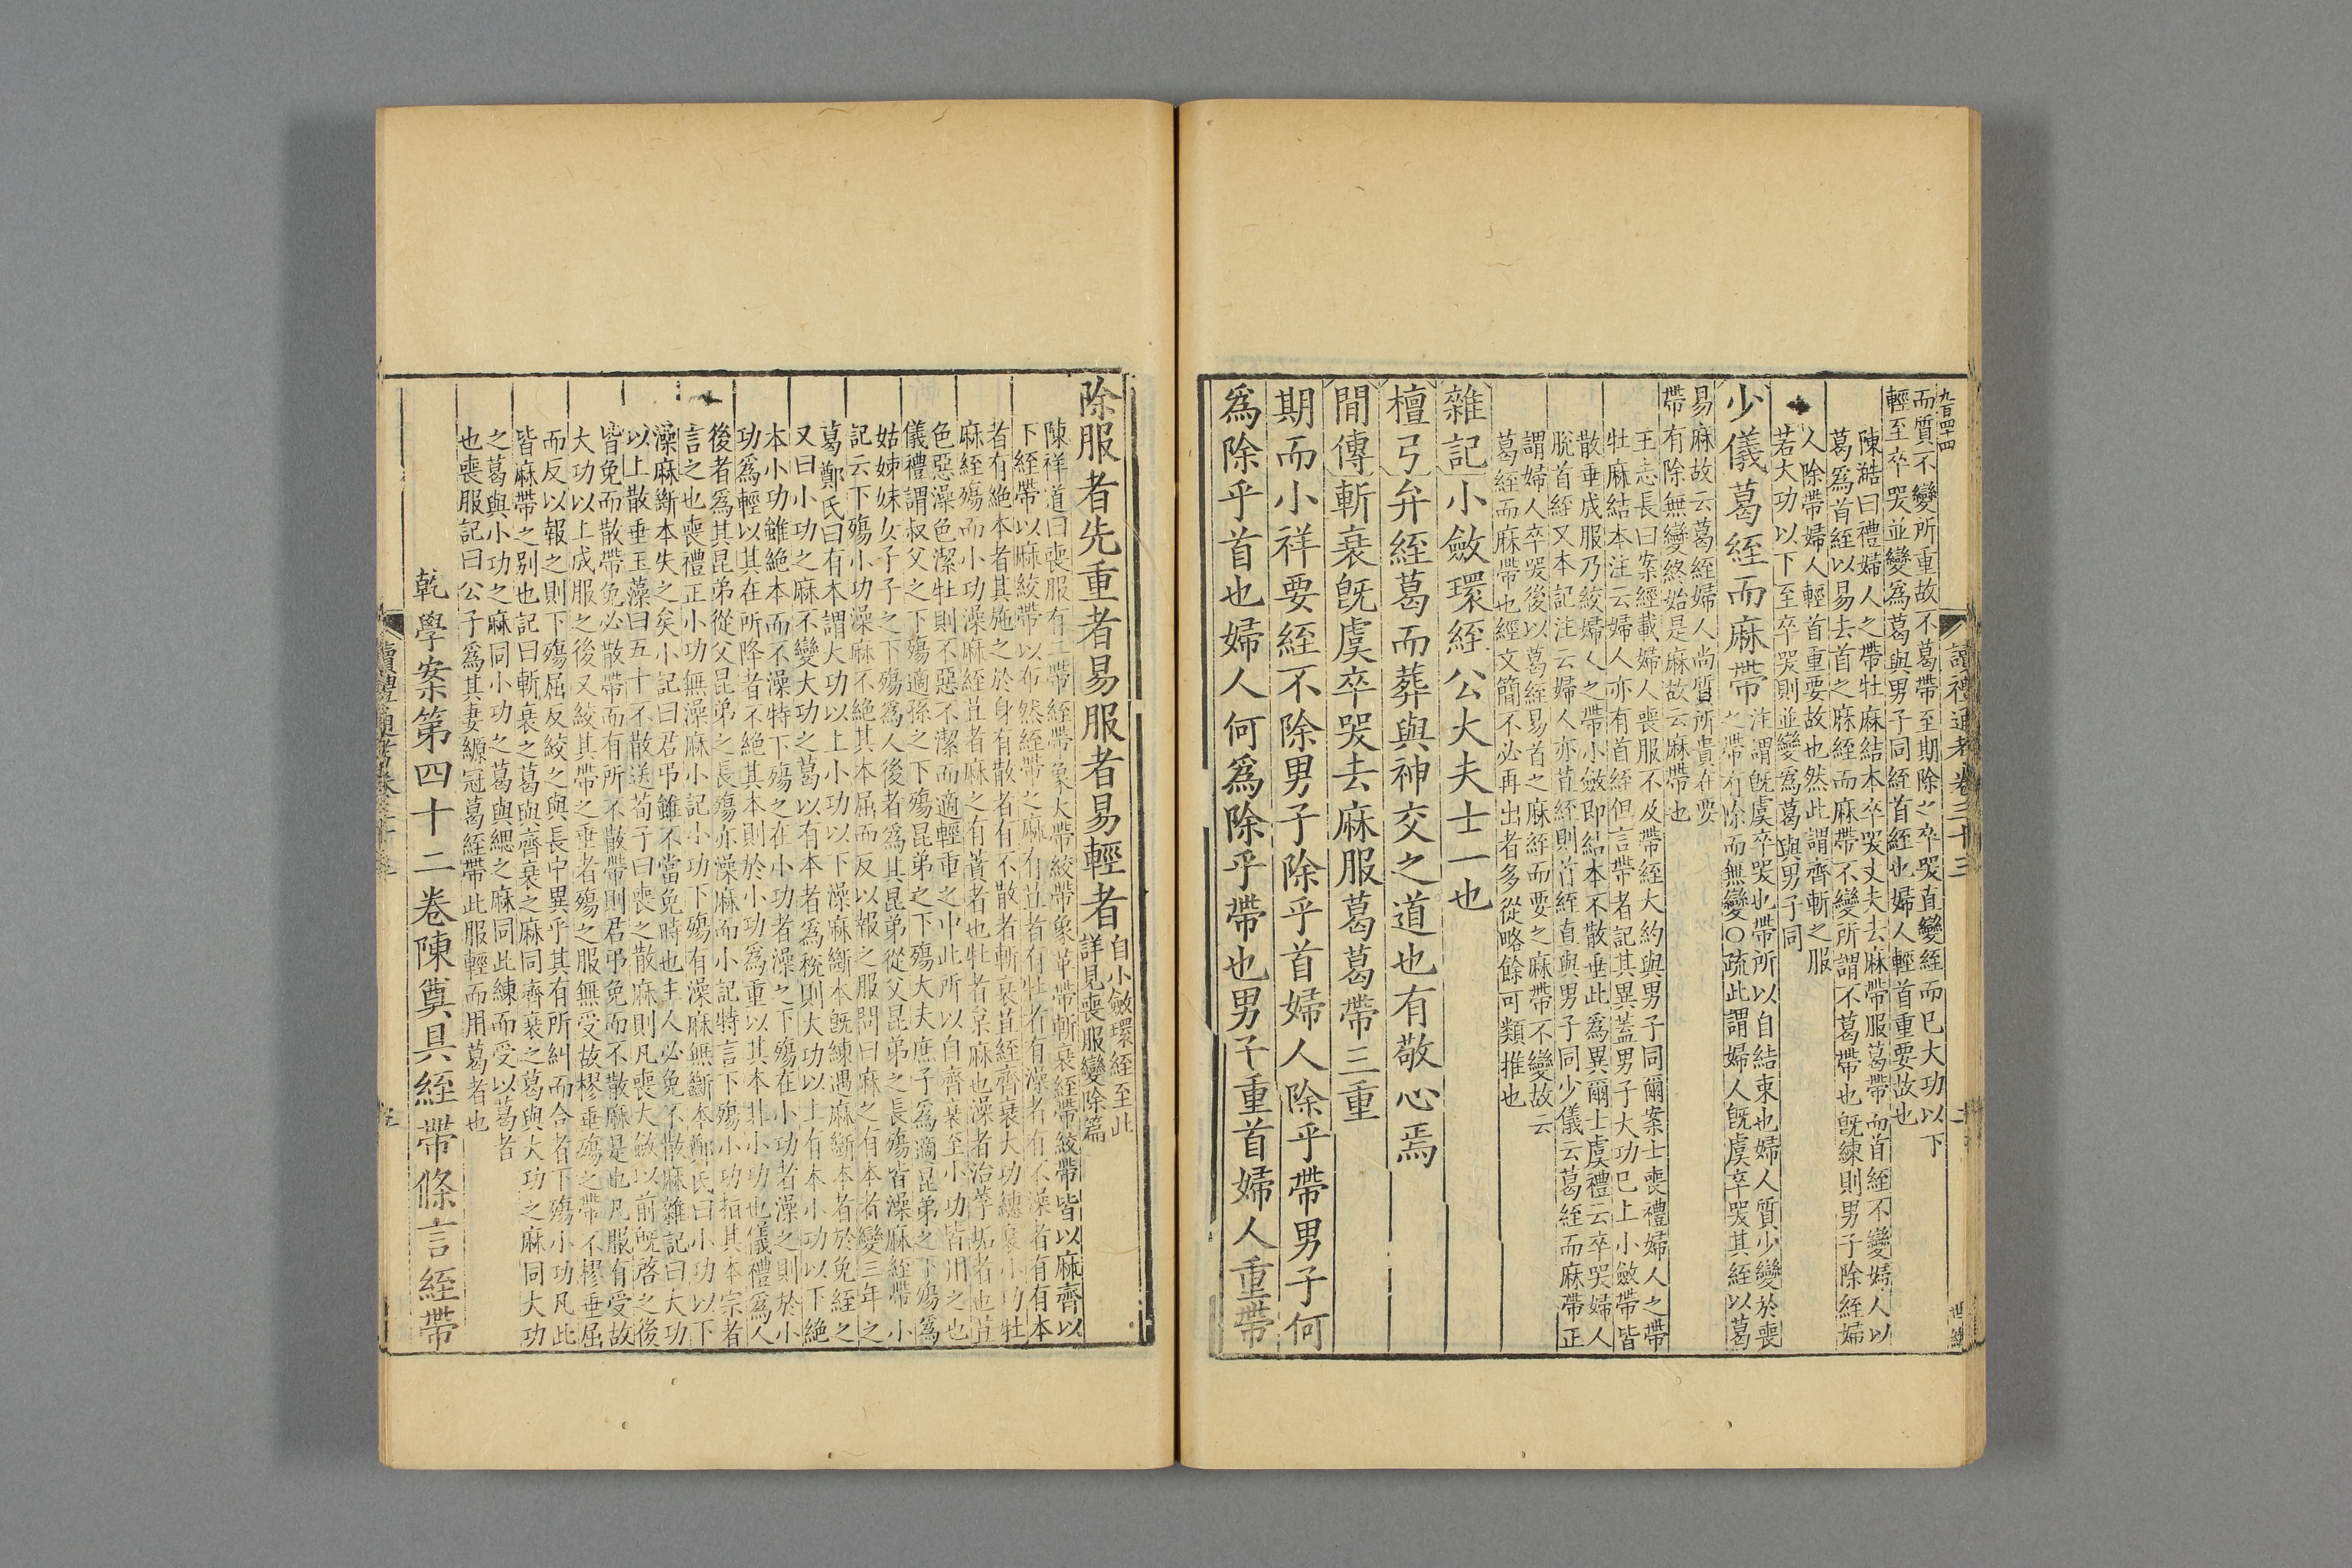 九百四十四
而質不變所重故不葛帶至期除之卒哭直變絰而已大功以下
輕至卒哭並變為葛與男子同絰首絰也婦人輕首重要故也
陳澔曰禮婦人之帶牡麻結本卒哭丈夫去麻帶服葛帶而首絰不變婦人以
葛為首絰以易去首之麻絰而麻帶不變所謂不葛帶也既練則男子除絰婦
人除帶婦人輕首重要故也然此謂齊斬之服
若大功以下至卒哭則並變為葛與男子同
少儀葛絰而麻帶
注謂既虞卒哭也帶所以自結束也婦人質少變於喪
之帶有除而無變○疏此謂婦人既虞卒哭其絰以葛
易麻故云葛絰婦人尚質所貴在要
帶有除無變終始是麻故云麻帶也
王志長曰案經載婦人喪服不及帶絰大約與男子同爾案士喪禮婦人之帶
牡麻結本注云婦人亦有首絰但言帶者記其異蓋男子大功已上小斂帶皆
散垂成服乃絞婦人之帶小斂即結本不散垂此為異爾士虞禮云卒哭婦人
脫首絰又本記注云婦人亦苴絰則首絰直與男子同少儀云葛絰而麻帶正
謂婦人卒哭後以葛絰易首之麻絰而要之麻帶不變故云
葛絰而麻帶也經文簡不必再出者多從略餘可類推也
雜記小斂環絰公大夫士一也
檀弓弁絰葛而葬與神交之道也有敬心焉
間傳斬衰既虞卒哭去麻服葛葛帶三重
期而小祥要絰不除男子除乎首婦人除乎帶男子何
為除乎首也婦人何為除乎帶也男子重首婦人重帶
讀禮通考卷三十三
二
除服者先重者易服者易輕者
自小斂環絰至此
詳見喪服變除篇
陳祥道曰喪服有二帶絰帶象大帶絞帶象革帶斬衰絰帶絞帶皆以麻齊以
下絰帶以麻絞帶以布然絰帶之麻有苴者有牡者有澡者有不澡者有有本
者有絕本者其施之於身有散者有不散者斬衰苴絰齊衰大功繐衰小功牡
麻絰殤而小功澡麻絰苴者麻之有蕡者也牡者枲麻也澡者治莩垢者也苴
色惡澡色潔牡則不惡不潔而適輕重之中此所以自齊衰至小功皆用之也
儀禮謂叔父之下殤適孫之下殤昆弟之下殤大夫庶子為適昆弟之下殤為
姑姊妹女子子之下殤為人後者為其昆弟從父昆弟之長殤皆澡麻絰帶小
記云下殤小功澡麻不絕其本屈而反以報之服問曰麻之有本者變三年之
葛鄭氏曰有本謂大功以上小功以下澡麻斷本既練遇麻斷本者於免絰之
又曰小功之麻不變大功之葛以有本者為稅則大功以上有本小功以下絕
本小功雖絕本而不澡特下殤之在小功者澡之下殤在小功者澡之則於小
功為輕以其在所降者不絕其本則於小功為重以其本非小功也儀禮為人
後者為其昆弟從父昆弟之長殤亦澡麻而小記特言下殤小功指其本宗者
言之也喪禮正小功無澡麻小記小功下殤有澡麻無斷本鄭氏曰小功以下
澡麻斷本失之矣小記曰君弔雖不當免時也主人必免不散麻雜記曰大功
以上散垂玉藻曰五十不散送荀子曰喪之散麻則凡喪大斂以前既啓之後
皆免而散帶免必散帶而有所不散帶則君弔免而不散麻是也凡服有受故
大功以上成服之後又絞其帶之垂者殤之服無受故樛垂殤之帶不樛垂屈
而反以報之則下殤屈反絞之與長中異乎其有所糾而合者下殤小功凡此
皆麻帶之別也記曰斬衰之葛與齊衰之麻同齊衰之葛與大功之麻同大功
之葛與小功之麻同小功之葛與緦之麻同此練而受以葛者
也喪服記曰公子為其妻縓冠葛絰帶此服輕而用葛者也
乾學案第四十二卷陳奠具絰帶條言絰帶
讀禮通考卷三十三